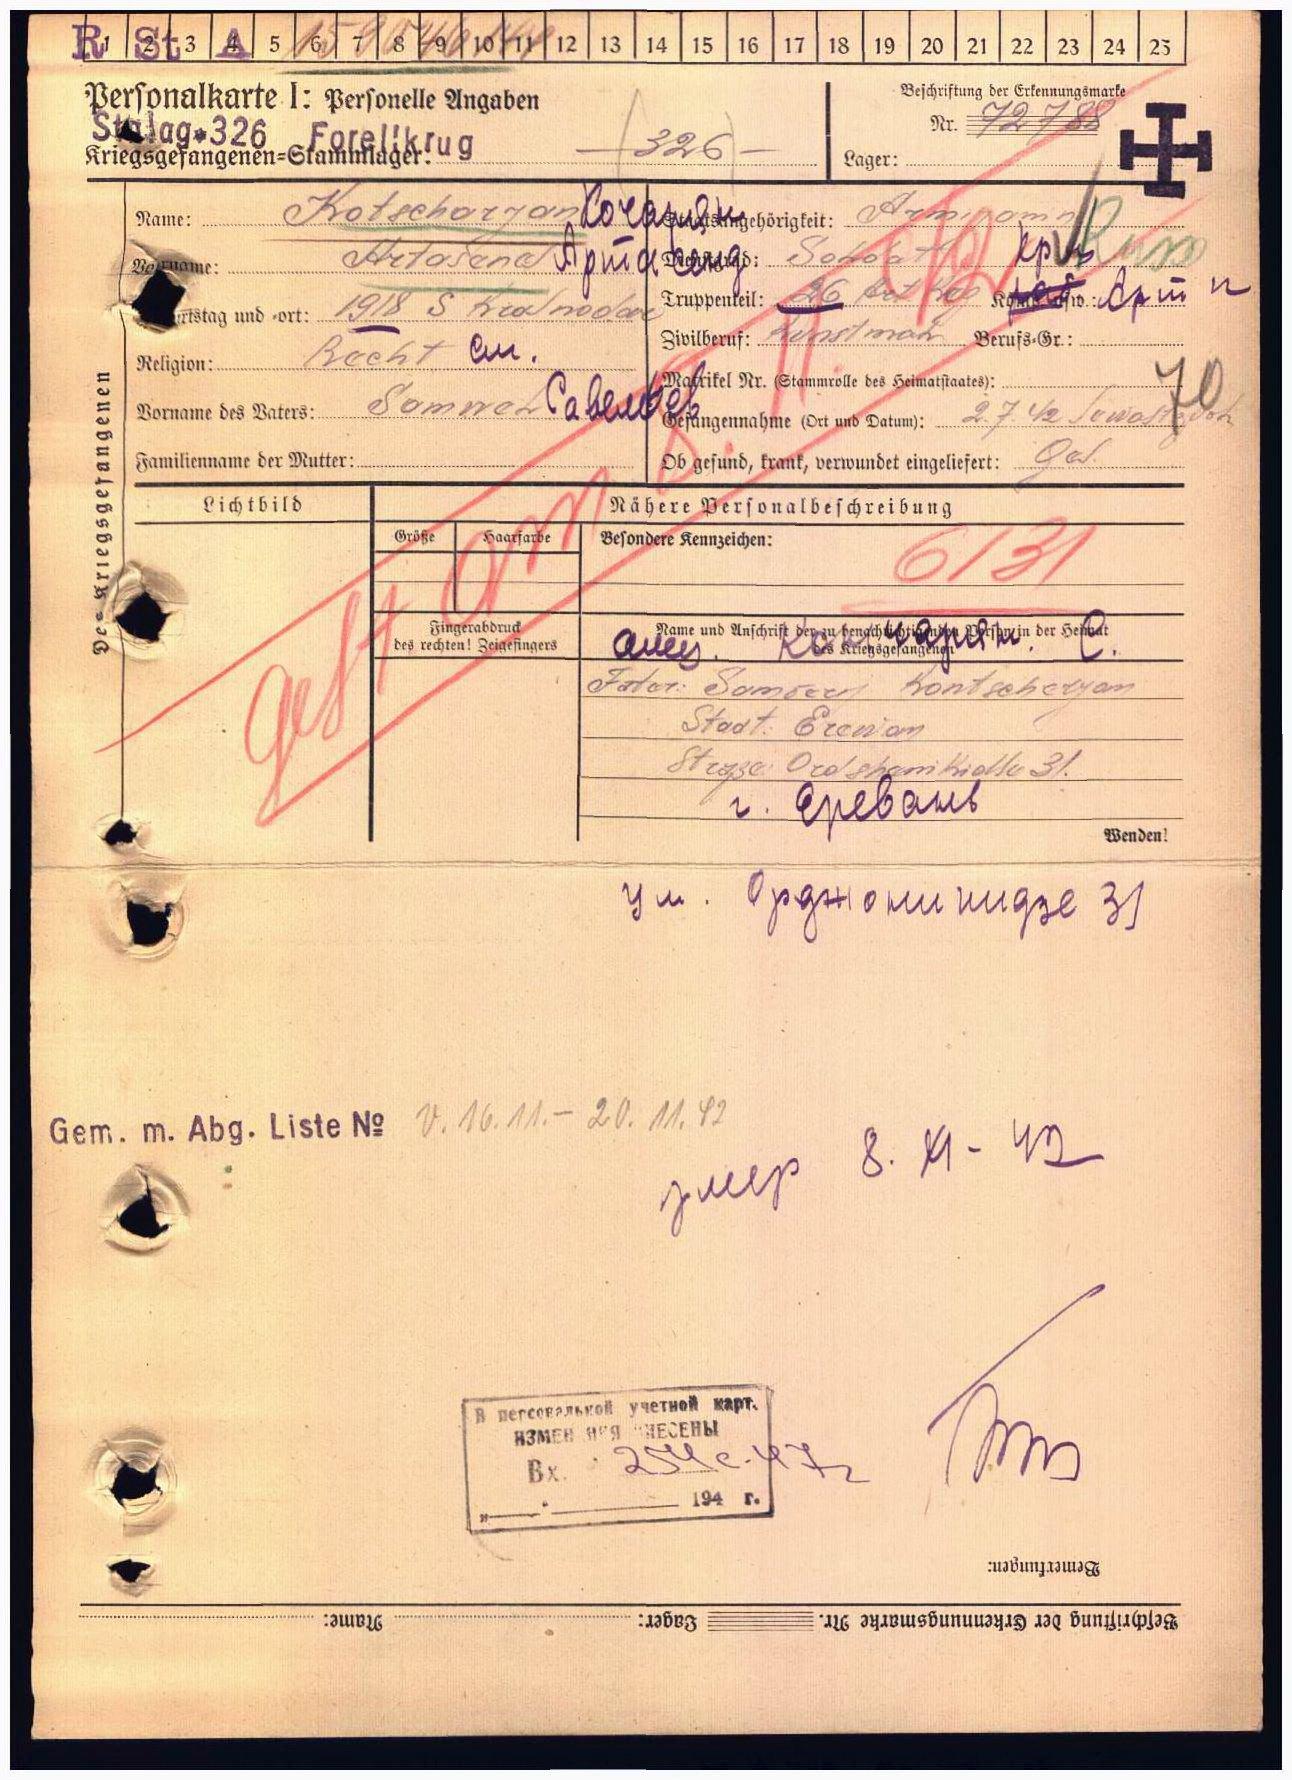 R St A
1 2 3 4 5 6 7 8 9 10 11 12 13 14 15 16 17 18 19 20 21 22 23 24 25
Personalkarte I: Personelle Angaben
Beschriftung der Erkennungsmarke
Stalag 326 Forellkrug
Nr. 72788
Kriegsgefangenen-Stammlager: — 326 —
Lager:
Des Kriegsgefangenen
Name: Kotscharjan Кочарян
Vorname: Артасенд
Geburtstag und -ort: 1918
Religion:
Vorname des Vaters: Савельев
Familienname der Mutter:
Staatsangehörigkeit: Russ
Dienstgrad: Soldat кр-ц
Truppenteil: 26 Art Reg Komp. usw.: Арт п
Zivilberuf: Berufs-Gr.:
Matrikel Nr. (Stammrolle des Heimatstaates):
70
Gefangennahme (Ort und Datum): 2.7.42
Ob gesund, krank, verwundet eingeliefert: Ges.
gest am 8. 11. 42
Lichtbild
Nähere Personalbeschreibung
Größe
Haarfarbe
Besondere Kennzeichen:
6131
Fingerabdruck
des rechten! Zeigefingers
Name und Anschrift der zu benachrichtigenden Person in der Heimat
des Kriegsgefangenen
отец. Кочарян. С.
Fater: Kontscherjan
Stadt: Erewan
31.
г. Еревань
Wenden!
ул. Орджоникидзе 31
Gem. m. Abg. Liste № v. 16.11.– 20.11.42
умер 8. XI - 42
В персональной учетной карт.
ИЗМЕНЕНИЯ ВНЕСЕНЫ
Вх. 254с-47г
„ “ 194 г.
Bemerkungen:
Beschriftung der Erkennungsmarke Nr. Lager: Name: